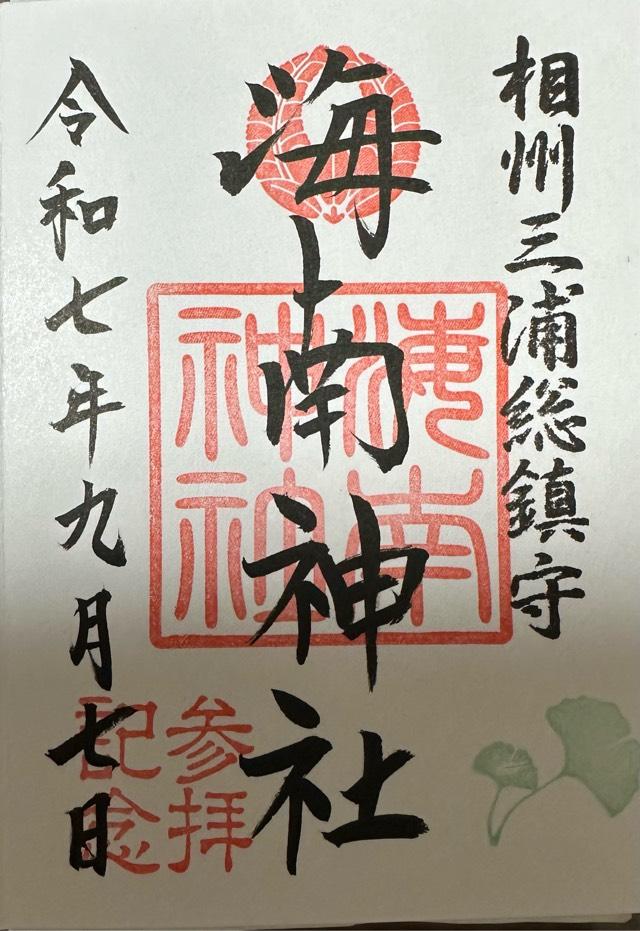 相州三浦総鎮守
海南神社
海南神社
参拝記念
令和七年九月七日